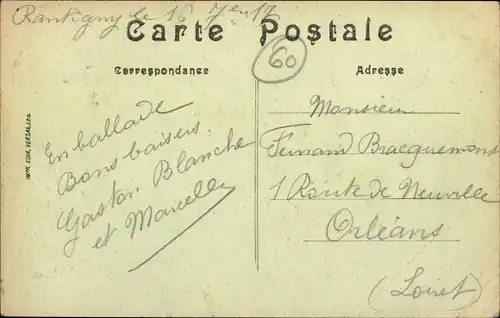 Rantigny le 16 7 en 17
Carte Postale
60
Correspondance
Adresse
En ballade
Bons baisers
Gaston Blanche
et Marcelle
Monsieur
Fernand Bracquemond
1 Route de Neuville
Orléans
(Loiret)
IMP. EDIA VERSAILLES